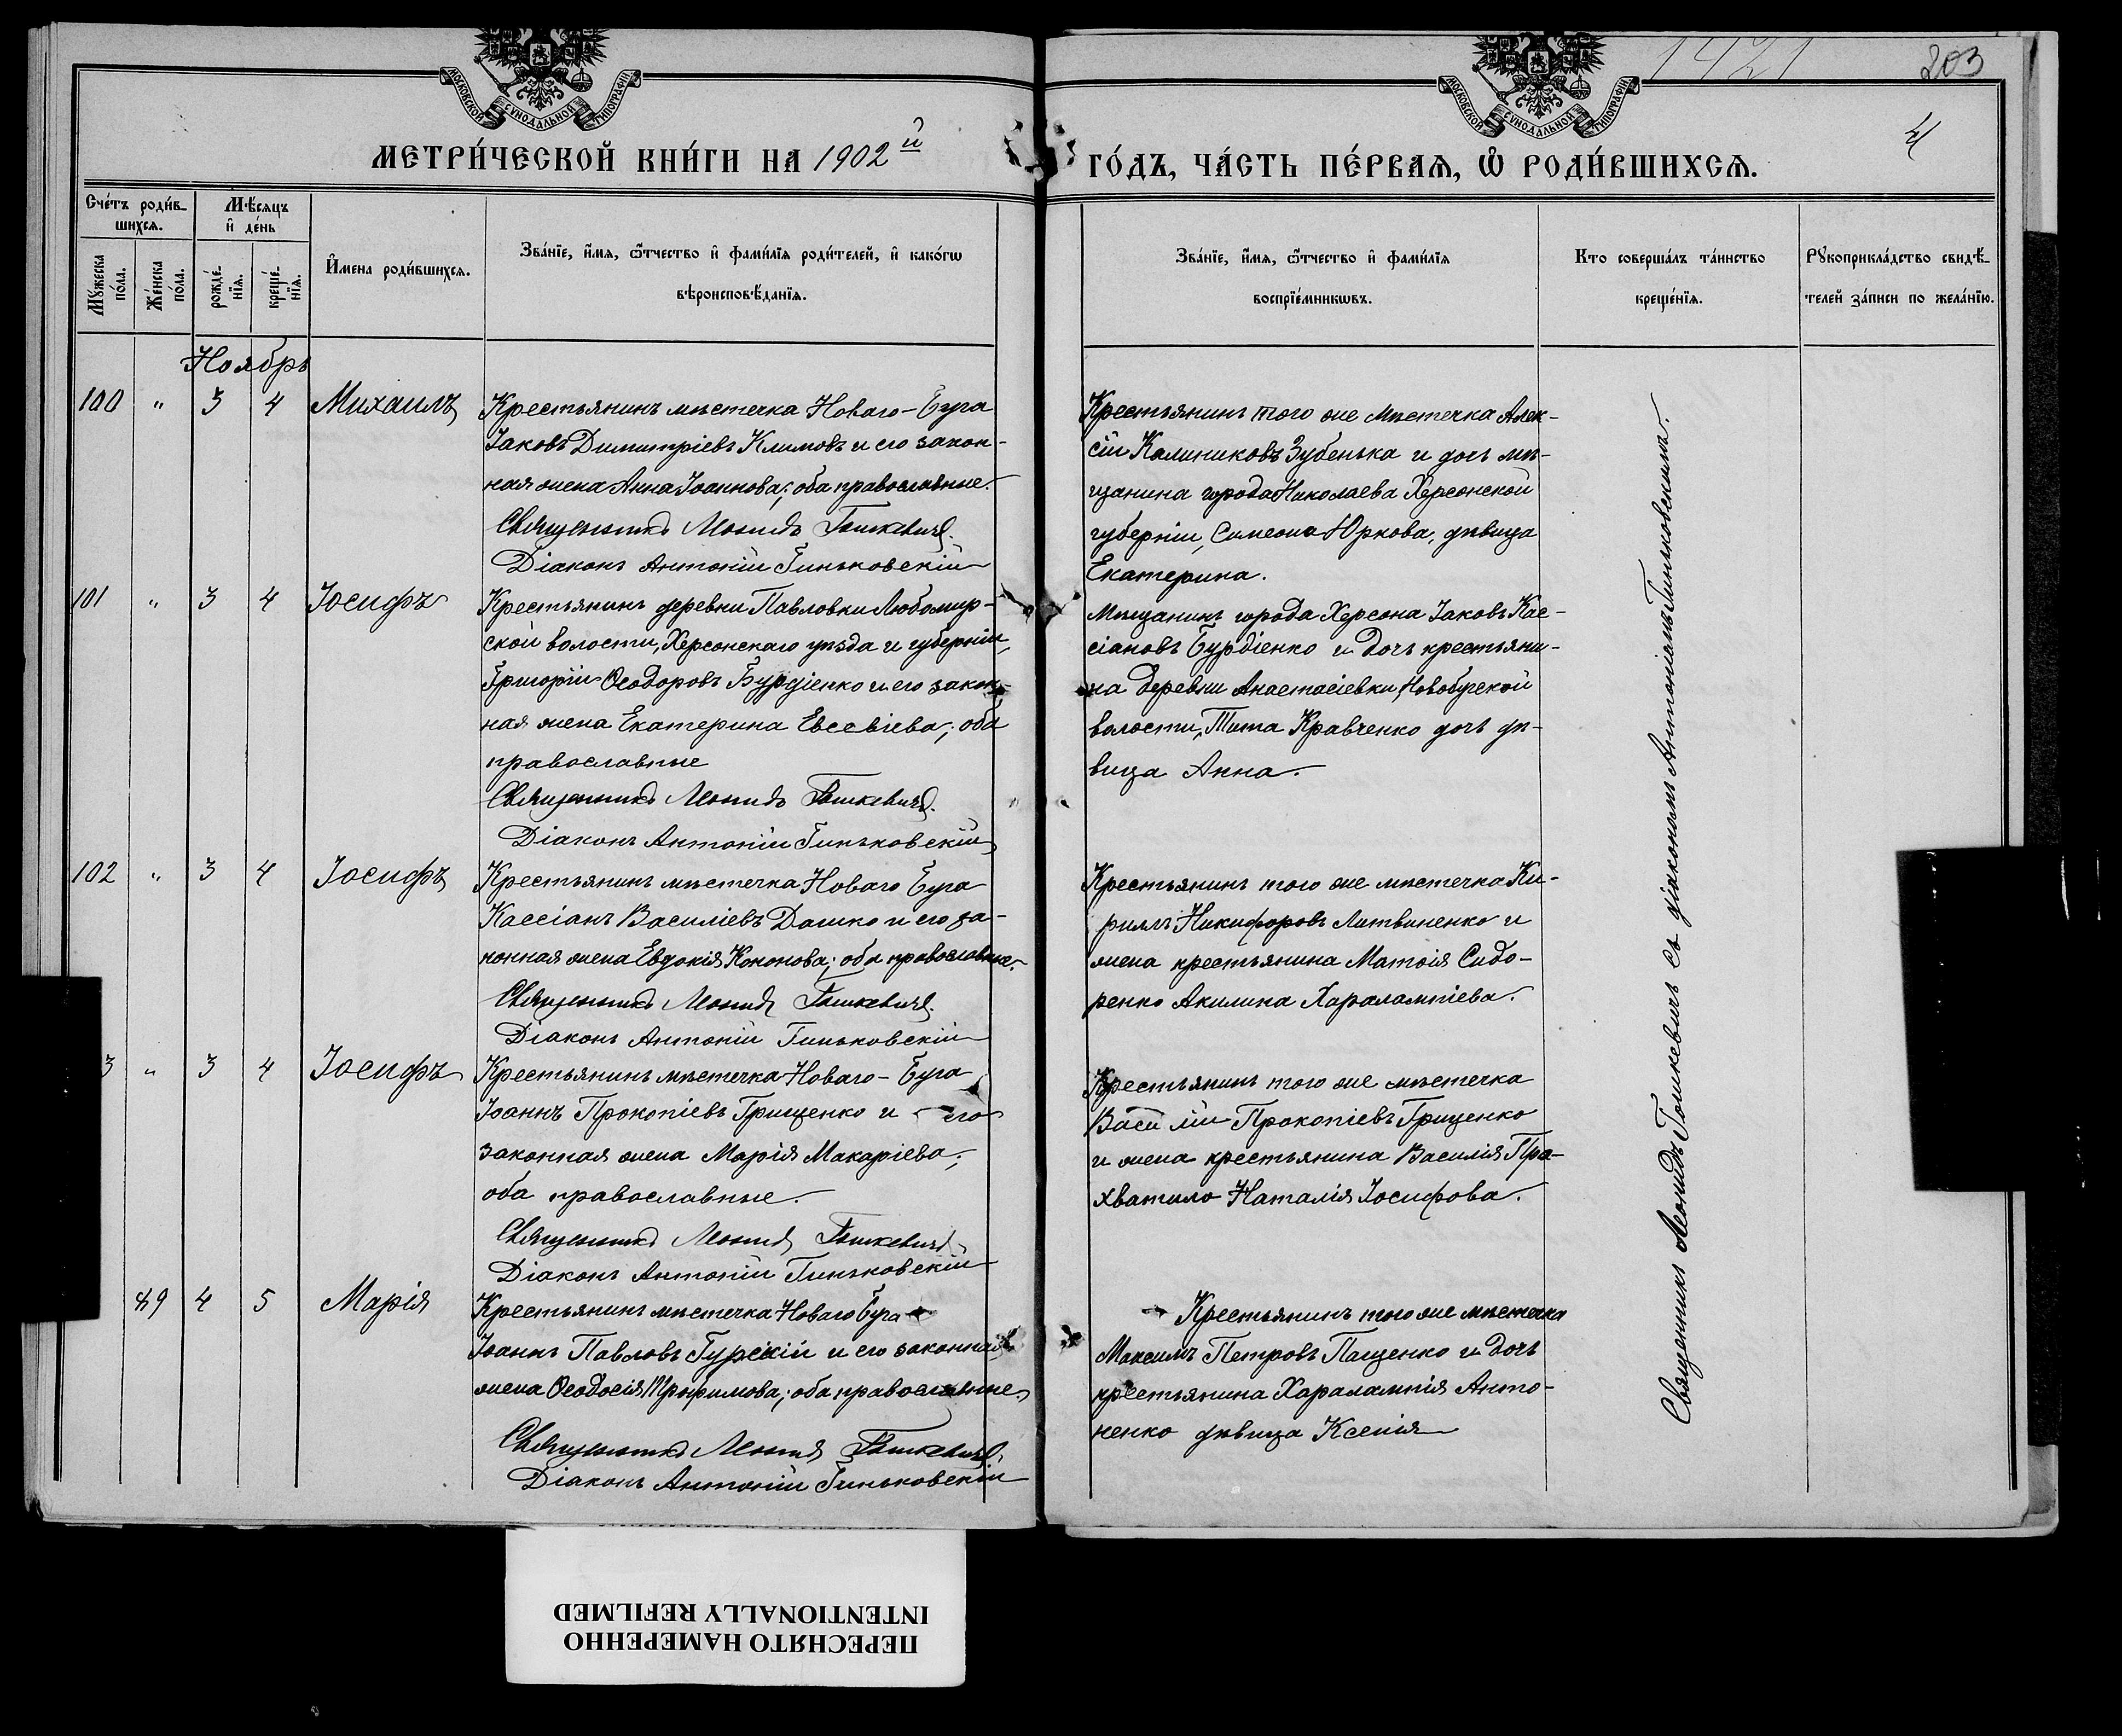 МОСКОВСКОЙ СѴНОДАЛЬНОЙ ТИПОГРАФІИ
МОСКОВСКОЙ СѴНОДАЛЬНОЙ ТИПОГРАФІИ
1421
203
МЕТРИ́ЧЕСКОЙ КНИ́ГИ НА 1902й
ГО́ДЪ, ЧА́СТЬ ПЕ́РВАЯ, Ѡ РОДИ́ВШИХСЯ.
Сче́тъ роди́в-
шихся.
Мѣ́сяцъ
и де́нь
Мꙋ́жеска
по́ла.
Же́нска
по́ла.
рожде́-
нїя.
креще́-
нїя.
И́мена роди́вшихся.
Зва́нїе, и́мя, ѻ́тчество и фами́лїя роди́телей, и како́гѡ
вѣроисповѣ́данїя.
Зва́нїе, и́мя, ѻ́тчество и фами́лїя
воспрїе́мникѡвъ.
Кто соверша́лъ та́инство
креще́нїя.
Рꙋкоприкла́дство свидѣ́-
телей за́писи по жела́нїю.
Ноябрь
100 " 3 4 Михаилъ
Крестьянинъ мѣстечка Новаго-Буга
Іаковъ Димитріевъ Климовъ и его закон-
ная жена Анна Іоаннова; оба православные.
Священникъ Леонидъ Гошкевичъ.
Діаконъ Антоній Гиньковскій
Крестьянинъ того же мѣстечка Алек-
сій Калиниковъ Зубенька и дочь мѣ-
щанина города Николаева Херсонской
губерніи, Симеона Юркова, дѣвица
Екатерина.
101 " 3 4 Іосифъ
Крестьянинъ деревни Павловки Любомир-
ской волости, Херсонскаго уѣзда и губерніи,
Григорій Ѳеодоровъ Бурдіенко и его закон-
ная жена Екатерина Евсевіева; оба
православные
Священникъ Леонидъ Гошкевичъ.
Діаконъ Антоній Гиньковскій
Мѣщанинъ города Херсона Іаковъ Кас-
сіановъ Бурдіенко и дочь крестьяни-
на деревни Анастасіевки, Новобугской
волости, Тита Кравченко дочь дѣ-
вица Анна.
102 " 3 4 Іосифъ
Крестьянинъ мѣстечка Новаго Буга
Кассіанъ Василіевъ Дашко и его за-
конная жена Евдокія Кононова; оба православные.
Священникъ Леонидъ Гошкевичъ.
Діаконъ Антоній Гиньковскій
Крестьянинъ того же мѣстечка Ки-
риллъ Никифоровъ Литвиненко и
жена крестьянина Матѳія Сидо-
ренко Акилина Харалампіева.
3 " 3 4 Іосифъ
Крестьянинъ мѣстечка Новаго-Буга
Іоаннъ Прокопіевъ Грищенко и его
законная жена Марія Макаріева;
оба православные.
Священникъ Леонидъ Гошкевичъ
Діаконъ Антоній Гиньковскій
Крестьянинъ того же мѣстечка
Василій Прокопіевъ Грищенко
и жена крестьянина Василія Пра-
хватило Наталія Іосифова.
89 4 5 Марія
Крестьянинъ мѣстечка Новаго Буга
Іоаннъ Павловъ Гурскій и его законная
жена Ѳеодосія Трофимова; оба православные.
Священникъ Леонидъ Гошкевичъ
Діаконъ Антоній Гиньковскій
Крестьянинъ того же мѣстечка
Максимъ Петровъ Пащенко и дочь
крестьянина Харалампія Анто-
ненко дѣвица Ксенія
Священникъ Леонидъ Гошкевичъ съ діакономъ Антоніемъ Гиньковскимъ.
ПЕРЕСНЯТО НАМЕРЕННО
INTENTIONALLY REFILMED